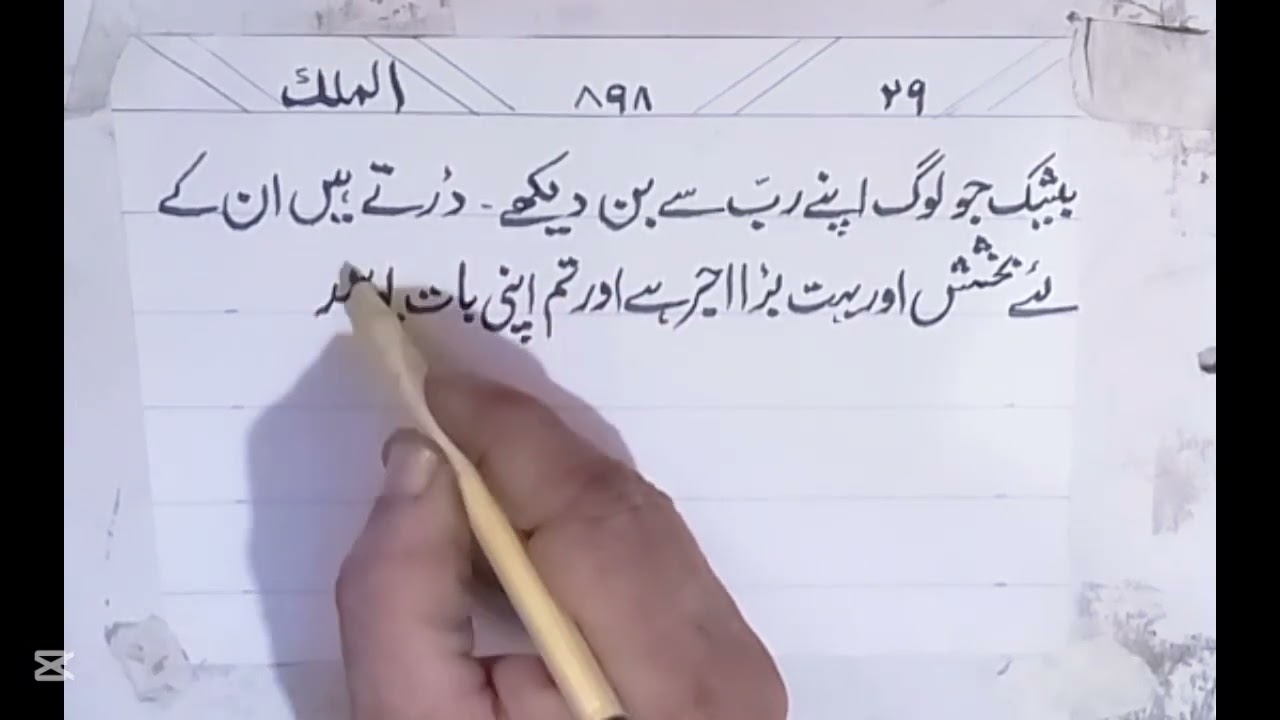 الملك ۸۹۸ ۲۹
بیشک جو لوگ اپنے ربّ سے بن دیکھے۔ ڈرتے ہیں ان کے
لئے بخشش اور بہت بڑا اجر ہے اور تم اپنی بات